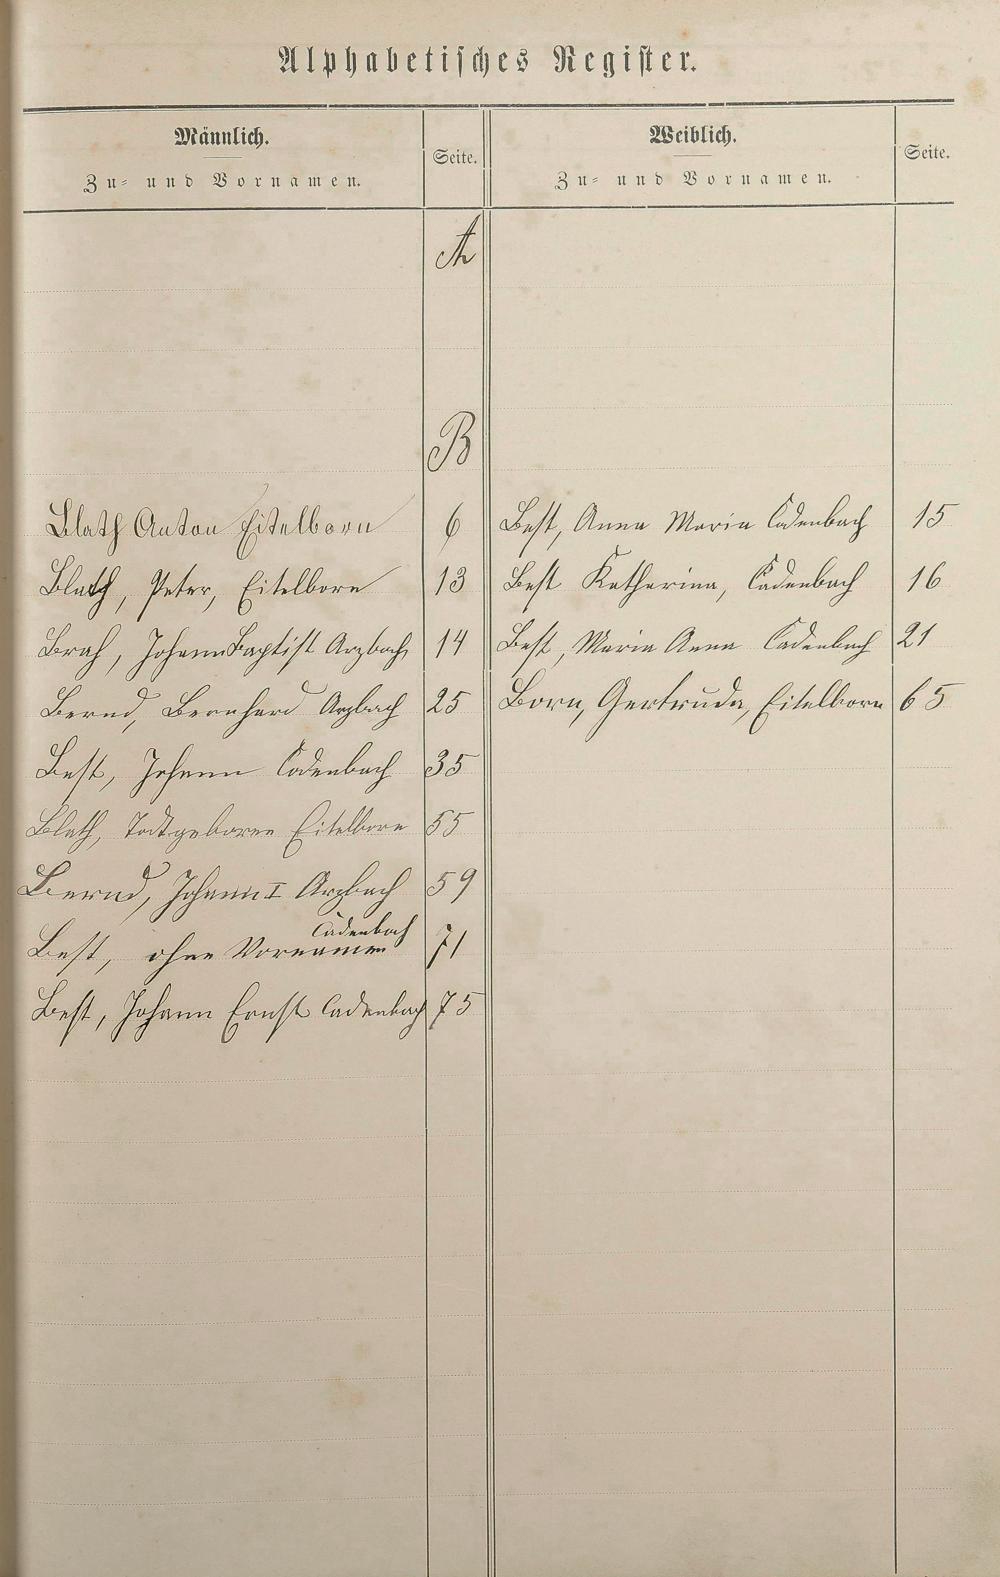 Alphabetisches Register.
Männlich. Weiblich.
Zu- und Vornamen. Seite. Zu- und Vornamen. Seite.
A
B
Blath Anton Eitelborn 6 Best, Anna Maria Cadenbach 15
Blath, Peter, Eitelborn 13 Best Katharina, Cadenbach 16
Brah, Johann Baptist Arzbach 14 Best, Maria Anna Cadenbach 21
Bernd, Bernhard Arzbach 25 Born, Gertruda, Eitelborn 65
Best, Johann Cadenbach 35
Blath, Todtgeboren Eitelborn 55
Bernd, Johann I Arzbach 59
Cadenbach
Best, ohne Vornamen 71
Best, Johann Ernst Cadenbach 75